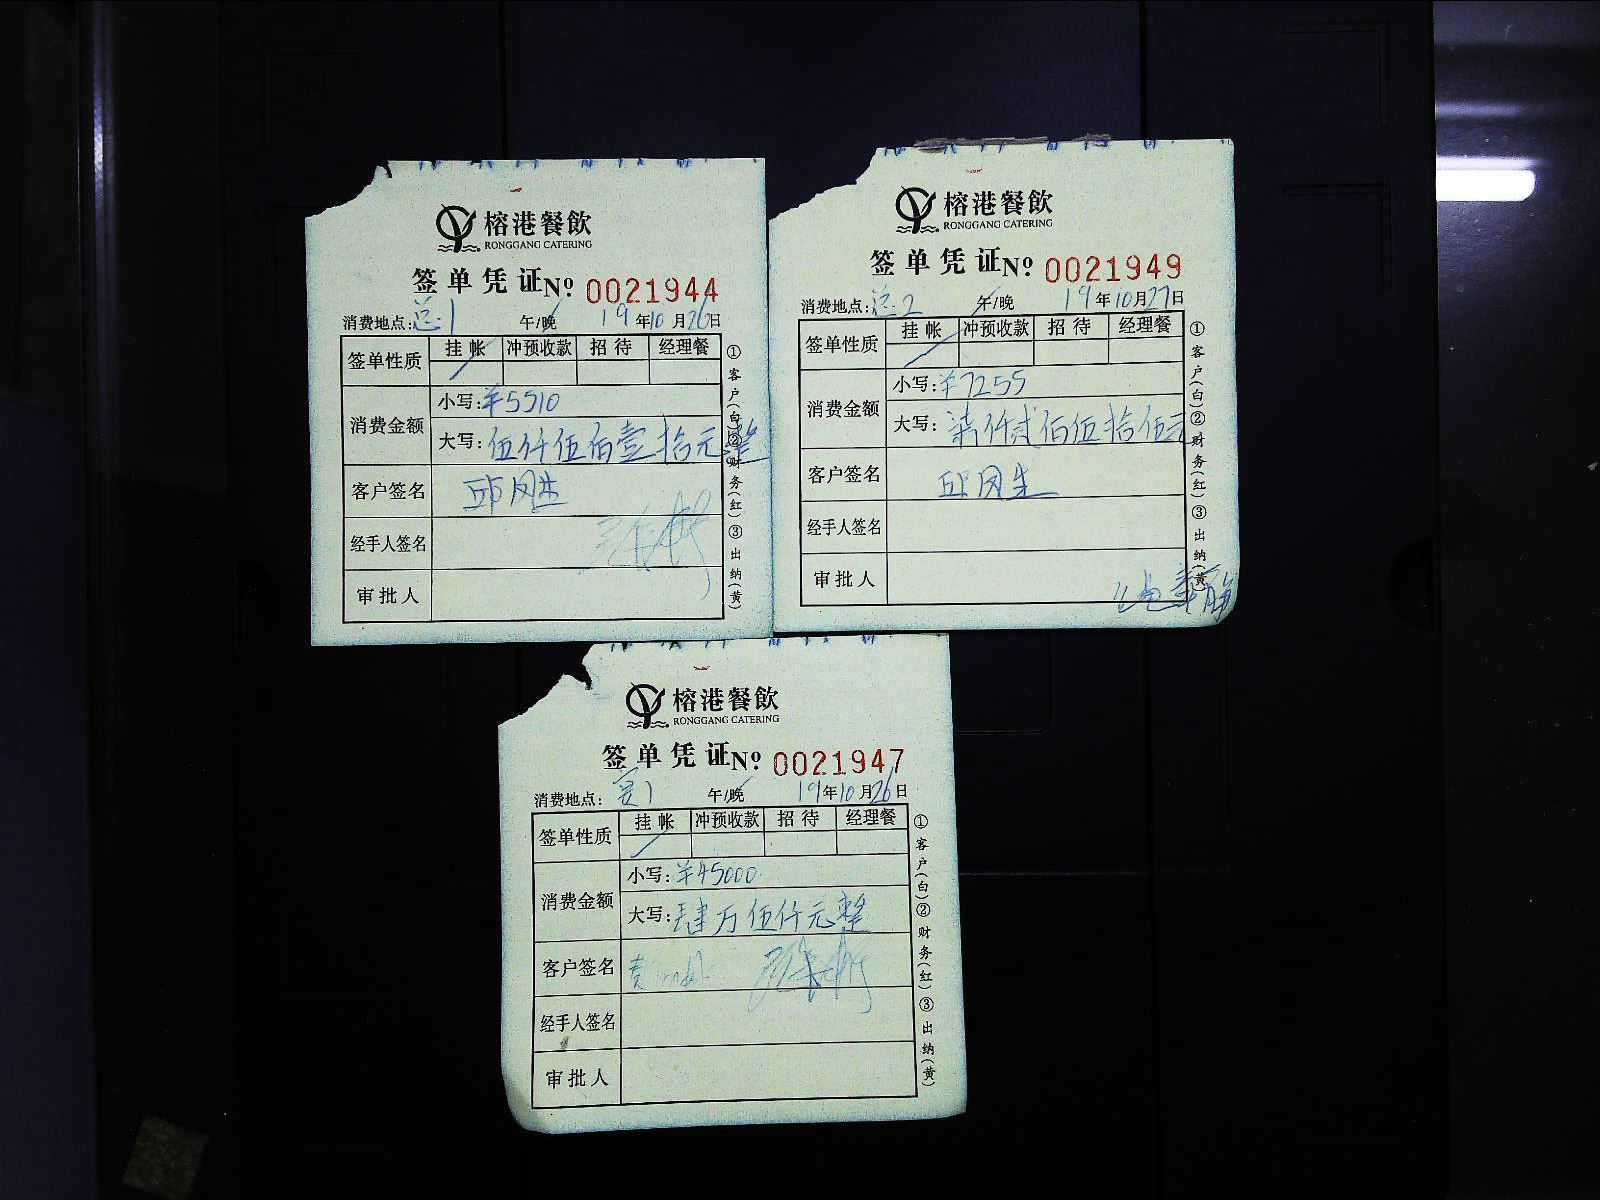 榕港餐飲
RONGGANG CATERING
签单凭证 Nº 0021944
消费地点: 总1 午/晚 19年10月26日
签单性质 挂帐 冲预收款 招待 经理餐
消费金额 小写: ¥5510
大写: 伍仟伍佰壹拾元整
客户签名
经手人签名
审批人
①客户(白)②财务(红)③出纳(黄)
榕港餐飲
RONGGANG CATERING
签单凭证 Nº 0021949
消费地点: 总2 午/晚 19年10月27日
签单性质 挂帐 冲预收款 招待 经理餐
消费金额 小写: ¥7255
大写: 柒仟贰佰伍拾伍元
客户签名
经手人签名
审批人
①客户(白)②财务(红)③出纳(黄)
榕港餐飲
RONGGANG CATERING
签单凭证 Nº 0021947
消费地点: 午/晚 19年10月26日
签单性质 挂帐 冲预收款 招待 经理餐
消费金额 小写: ¥45000
大写: 肆万伍仟元整
客户签名
经手人签名
审批人
①客户(白)②财务(红)③出纳(黄)